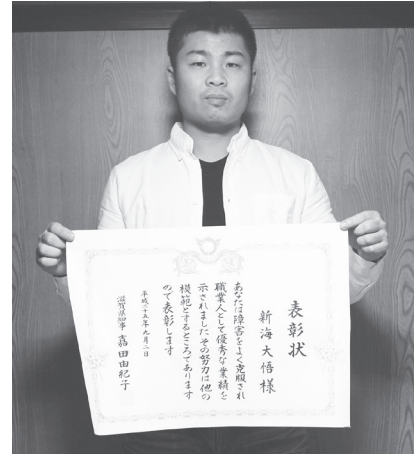 表彰状
新海大悟様
あなたは障害をよく克服され
職業人として優秀な業績を
示されましたその努力は他の
模範とするところであります
ので表彰します
平成二十五年九月二日
滋賀県知事 嘉田由紀子